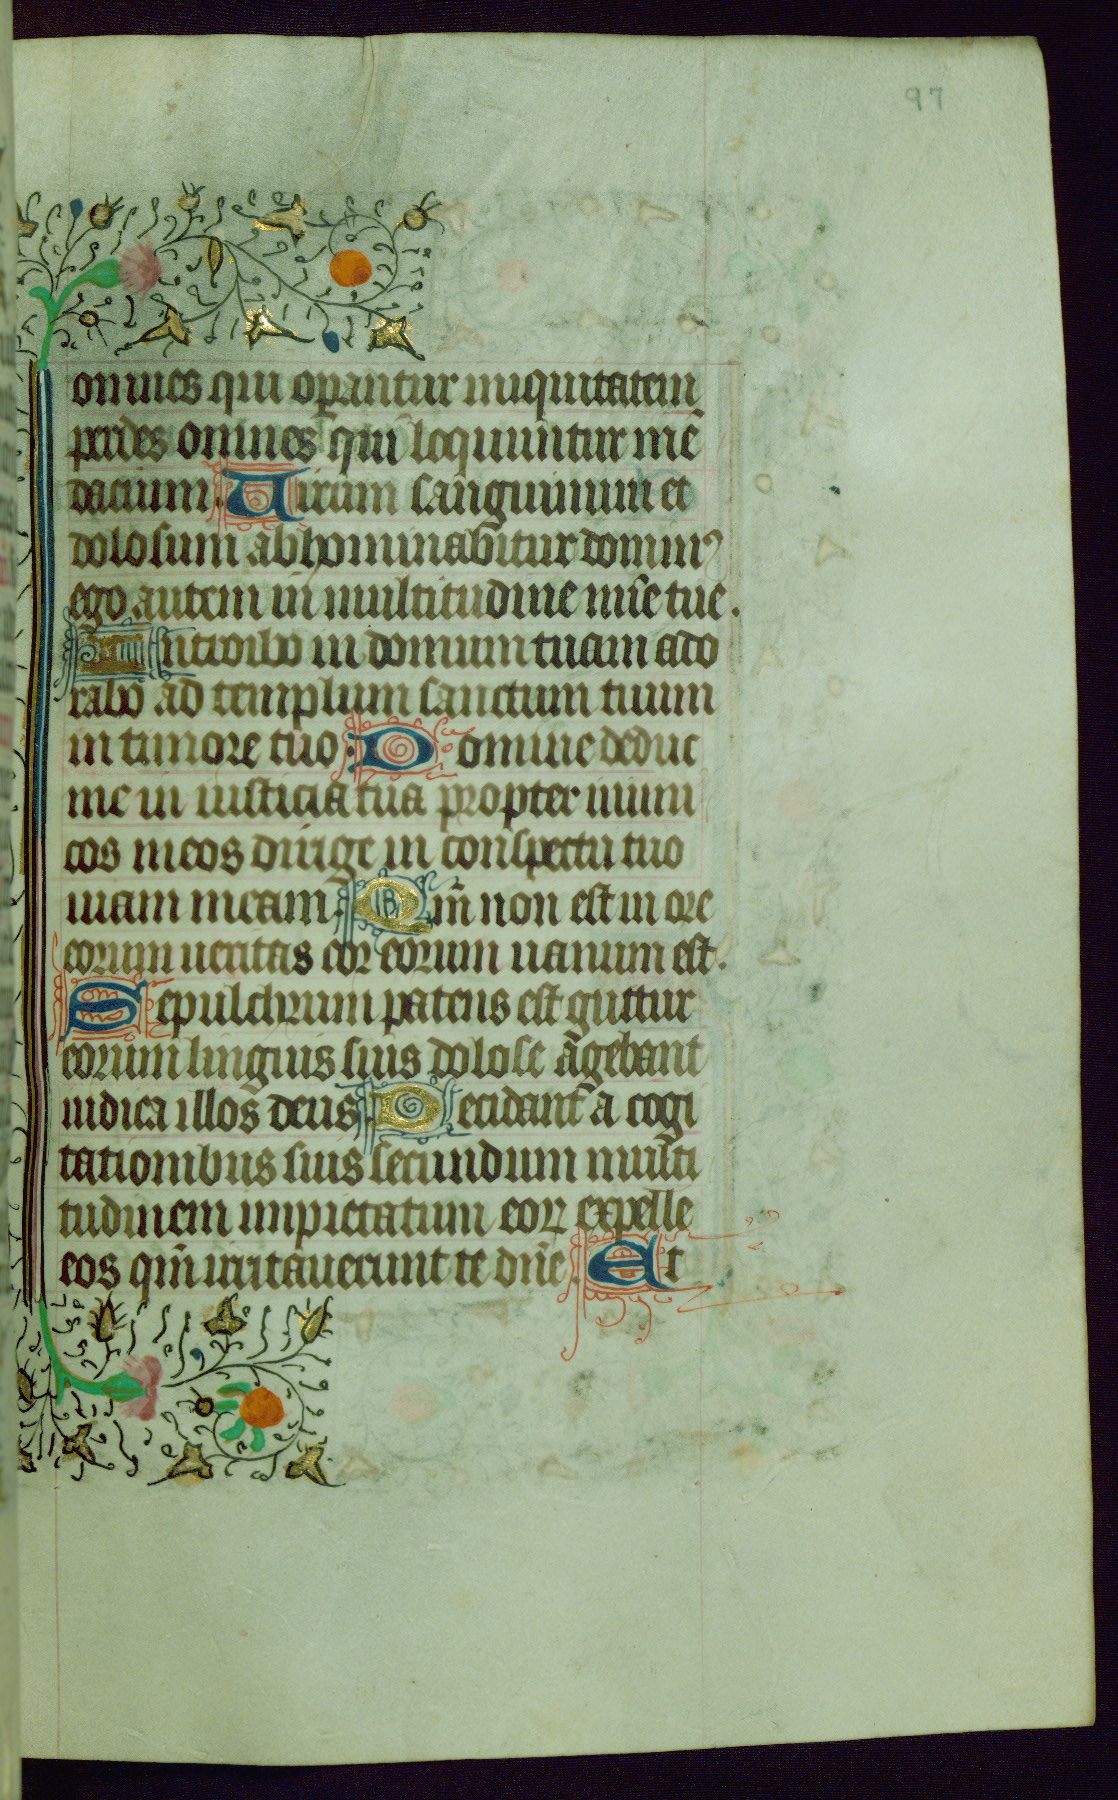 97
omnes qui operantur iniquitatem
perdes omnes qui loquuntur mē
dacium. Uirum sanguinum et
dolosum abhominabitur dominꝰ
ego autem in multitudine mīe tue.
Introibo in domum tuam ado
rabo ad templum sanctum tuum
in timore tuo. Domine deduc
me in iusticia tua propter inimi
cos meos dirige in conspectu tuo
uiam meam. Qm̄ non est in ore
eorum ueritas cor eorum uanum est.
Sepulchrum patens est guttur
eorum linguis suis dolose agebant
iudica illos deus. Decidant a cogi
tationibus suis secundum multi
tudinem impietatum eoꝝ expelle
eos qm̄ irritauerunt te dn̄e. Et